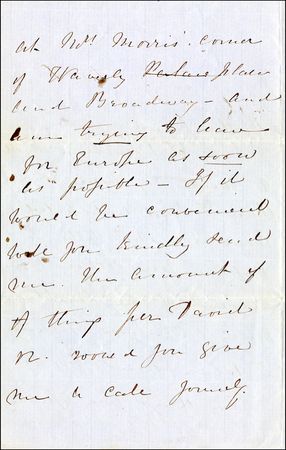 at Mrs Morris' corner
of Waverly place
and Broadway – and
am trying to leave
for Europe as soon
as possible – If it
would be convenient
wd you kindly send
me the amount of
thing per
R. would you give
me a